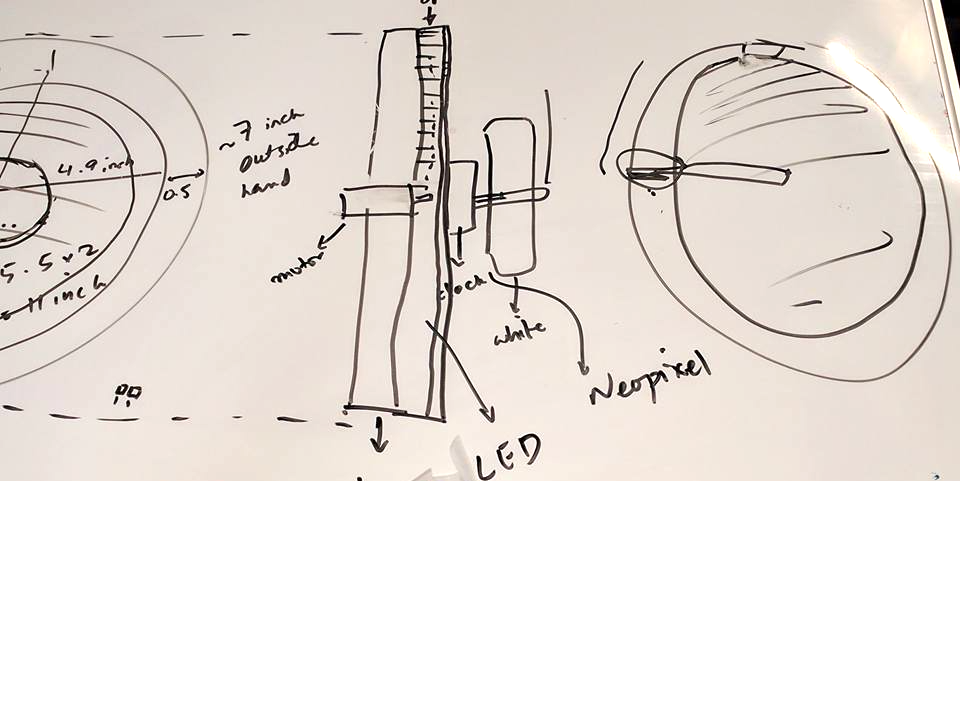 4.9 inch
0.5
~ 7 inch
outside
hand
5.5 x 2
11 inch
motor
clock
white
Neopixel
LED